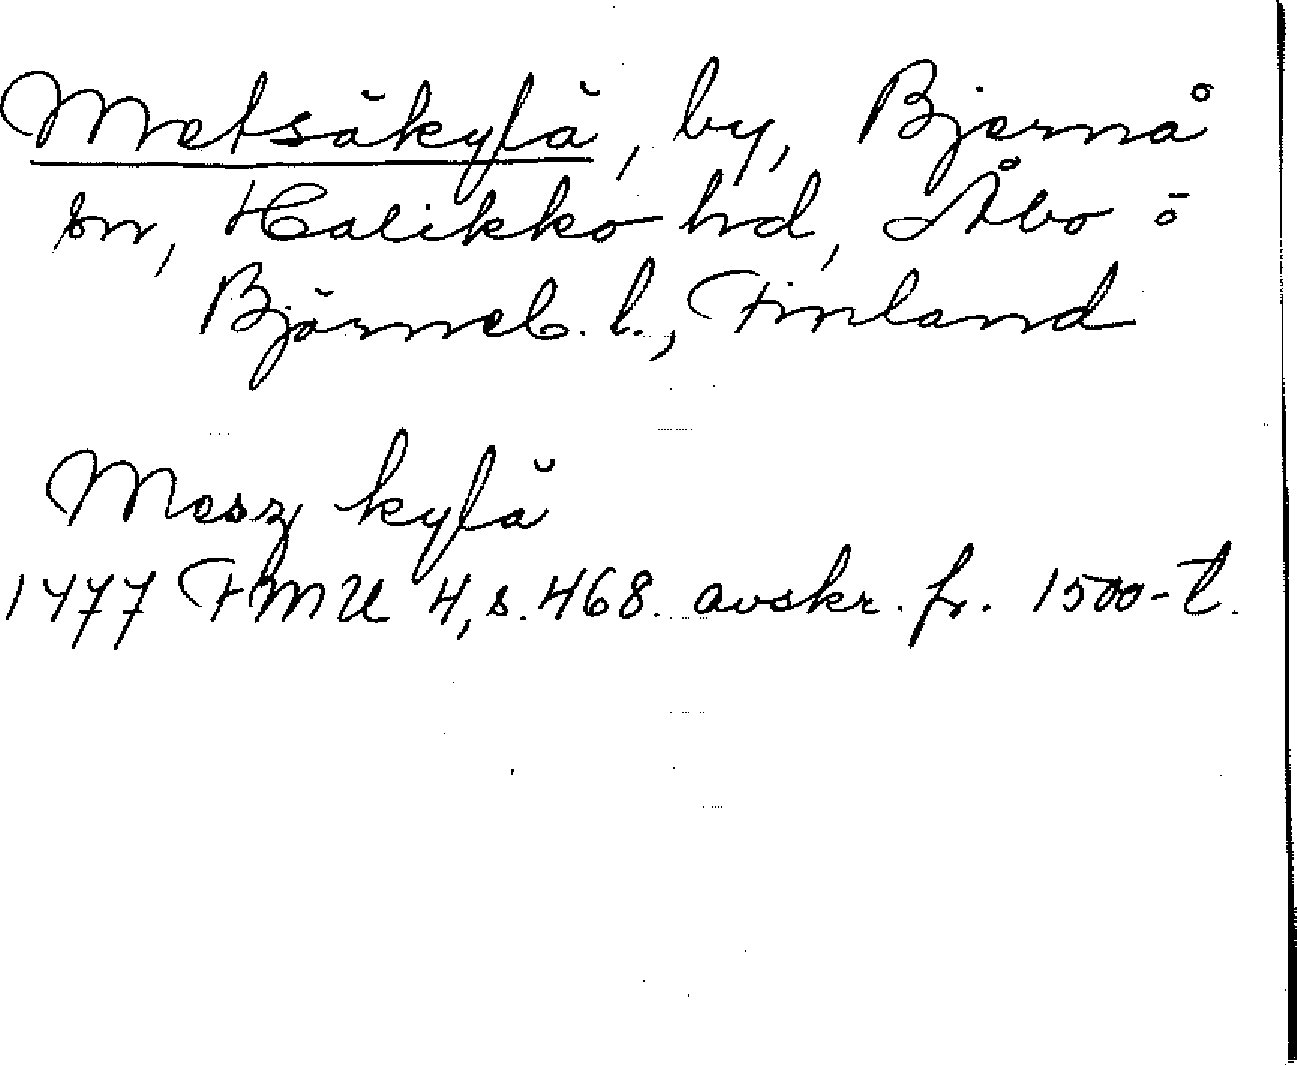 Metsäkylä, by, Bjernå
sn, Halikko hd, Åbo o
Björneb. l., Finland
Mesz kylä
1477 FMU 4, s. 468. avskr. fr. 1500-t.